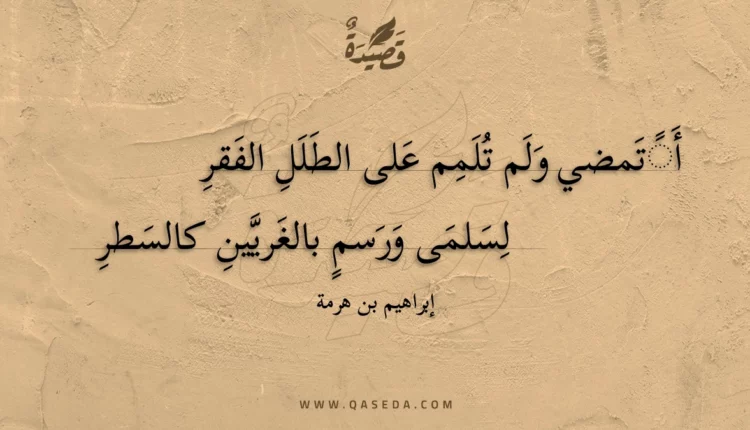 قَصِيدَةٌ
أَ◌ًتَمضي وَلَم تُلَمِم عَلى الطَلَلِ الفَقرِ
لِسَلمَى وَرَسمٍ بالغَريَّينِ كالسَطرِ
إبراهيم بن هرمة
WWW.QASEDA.COM